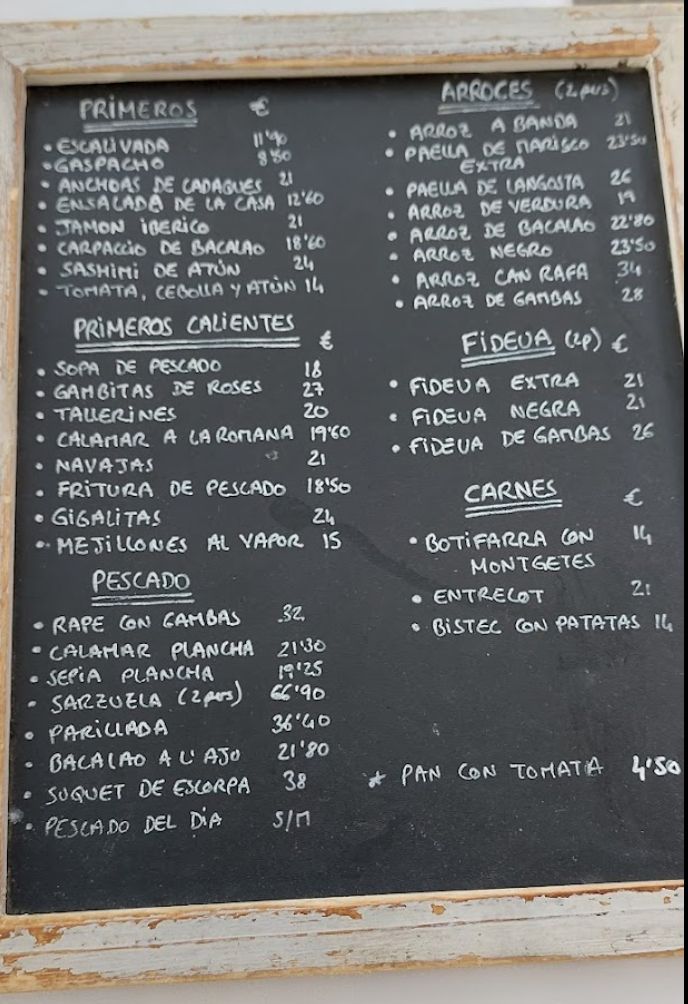 PRIMEROS €
• ESCALIVADA 11'90
• GASPACHO 8'50
• ANCHOAS DE CADAQUES 21
• ENSALADA DE LA CASA 12'60
• JAMON IBERICO 21
• CARPACCIO DE BACALAO 18'60
• SASHIMI DE ATÚN 24
• TOMATA, CEBOLLA Y ATÚN 14
PRIMEROS CALIENTES €
• SOPA DE PESCADO 18
• GAMBITAS DE ROSES 27
• TALLERINES 20
• CALAMAR A LA ROMANA 19'60
• NAVAJAS 21
• FRITURA DE PESCADO 18'50
• GIGALITAS 24
• MEJILLONES AL VAPOR 15
PESCADO
• RAPE CON GAMBAS 32
• CALAMAR PLANCHA 21'30
• SEPIA PLANCHA 19'25
• SARZUELA (2 pers) 66'90
• PARILLADA 36'40
• BACALAO A L'AJO 21'80
• SUQUET DE ESCORPA 38
• PESCADO DEL DÍA S/M
ARROCES (2 pers)
• ARROZ A BANDA 21
• PAELLA DE MARISCO 23'50
EXTRA
• PAELLA DE LANGOSTA 26
• ARROZ DE VERDURA 19
• ARROZ DE BACALAO 22'80
• ARROZ NEGRO 23'50
• ARROZ CAN RAFA 34
• ARROZ DE GAMBAS 28
FIDEUA (2p) €
• FIDEUA EXTRA 21
• FIDEUA NEGRA 21
• FIDEUA DE GAMBAS 26
CARNES €
• BOTIFARRA CON 14
MONTGETES
• ENTRECOT 21
• BISTEC CON PATATAS 14
* PAN CON TOMATA 4'50